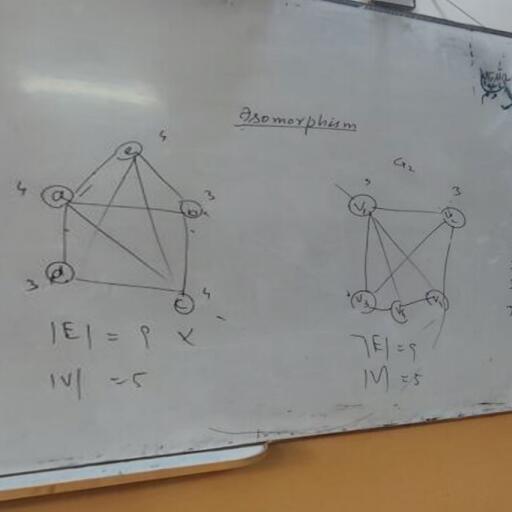 Isomorphism
4
e
4
a
b
3
3
d
c
4
|E| = 9 X
|V| = 5
G2
3
V1
V2
V3
V5
V4
|E| = 9
|V| = 5